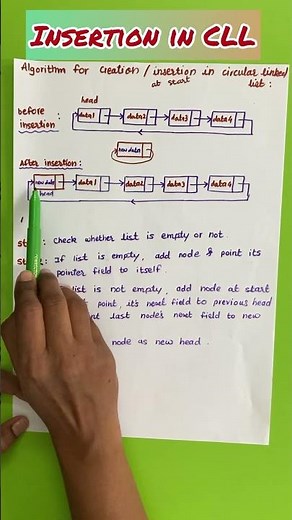 INSERTION IN CLL
Algorithm for creation / insertion in circular linked
at start list :
before
insertion:
head
data1 data2 data3 data4
new data
After insertion:
new data data1 data2 data3 data4
head
: Check whether list is empty or not
: If list is empty, add node & point its
pointer field to itself.
list is not empty, add node at start
point, it's next field to previous head
last node's next field to new
node as new head.